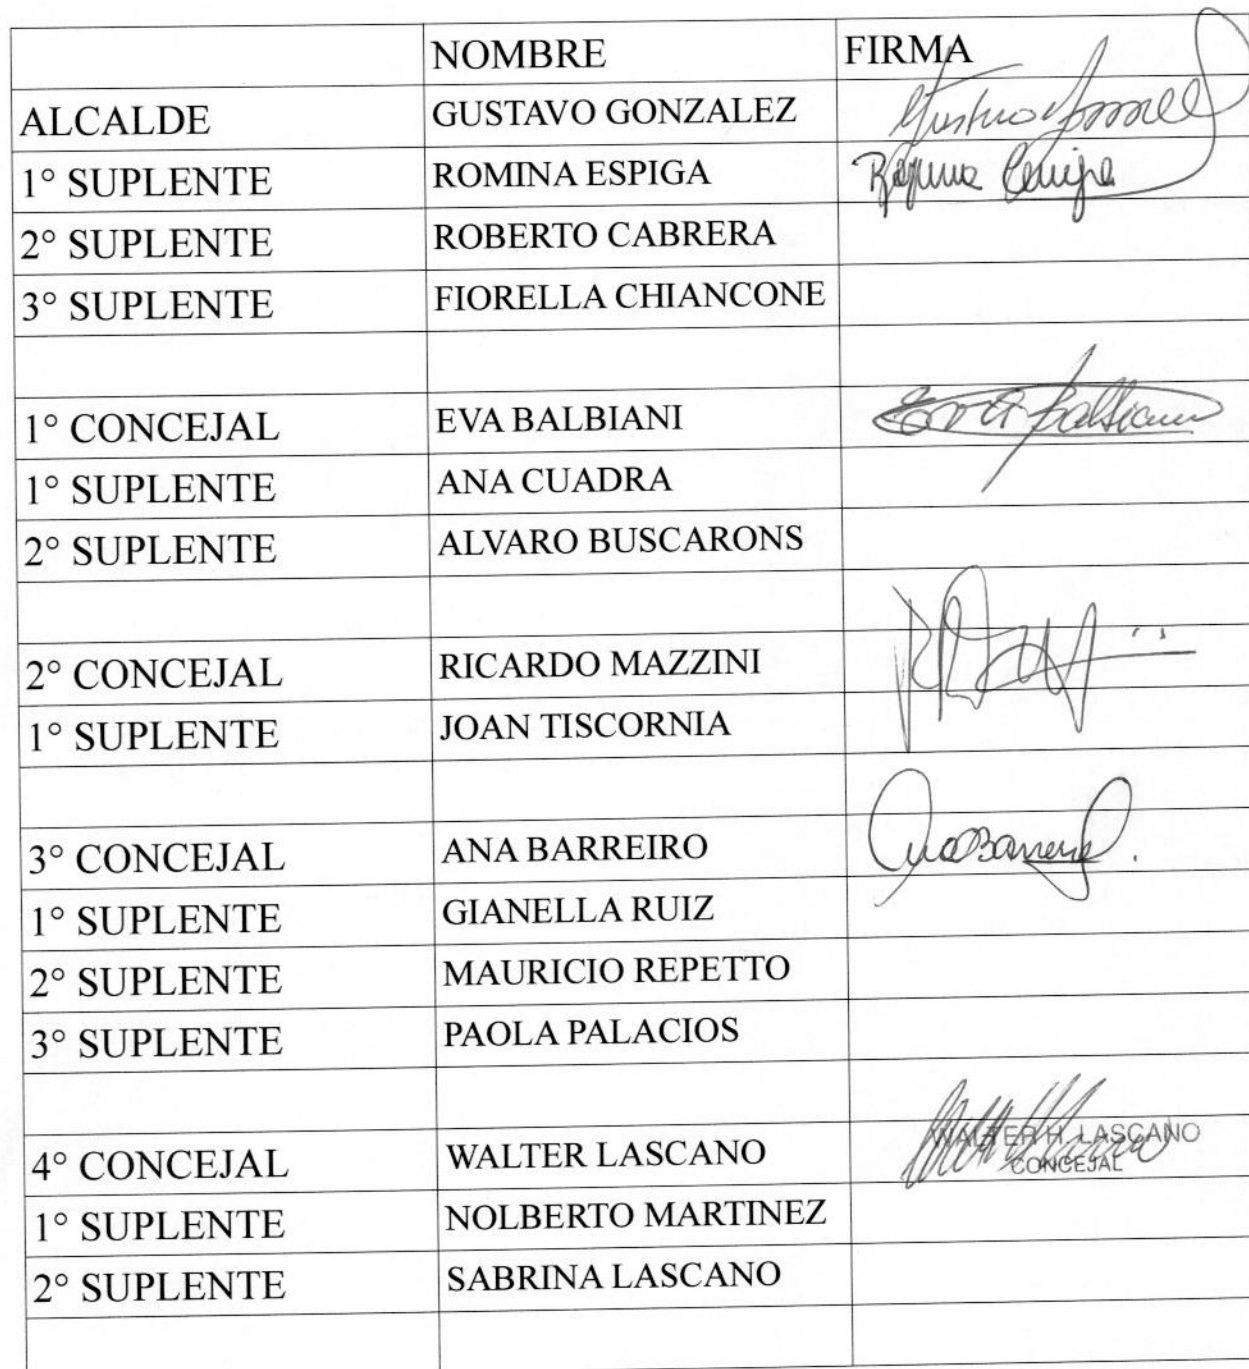 NOMBRE FIRMA
ALCALDE GUSTAVO GONZALEZ
1° SUPLENTE ROMINA ESPIGA
2° SUPLENTE ROBERTO CABRERA
3° SUPLENTE FIORELLA CHIANCONE
1° CONCEJAL EVA BALBIANI Eva Balbiani
1° SUPLENTE ANA CUADRA
2° SUPLENTE ALVARO BUSCARONS
2° CONCEJAL RICARDO MAZZINI
1° SUPLENTE JOAN TISCORNIA
3° CONCEJAL ANA BARREIRO
1° SUPLENTE GIANELLA RUIZ
2° SUPLENTE MAURICIO REPETTO
3° SUPLENTE PAOLA PALACIOS
4° CONCEJAL WALTER LASCANO WALTER H. LASCANO
CONCEJAL
1° SUPLENTE NOLBERTO MARTINEZ
2° SUPLENTE SABRINA LASCANO